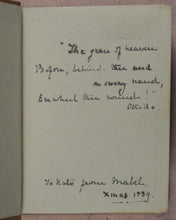 "The grace of heaven
Before, behind thee and
on every hand,
Enwheel thee round!"
Othello.
To Katie from Mabel.
Xmas 1889.